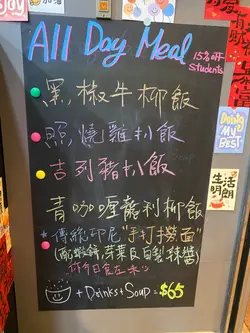 All Day Meal
15% off
students
黑椒牛柳飯
照燒雞扒飯
吉列豬扒飯
青咖喱龍利柳飯
*傳統印尼"手打"撈面"
(配蝦餅,芽菜及自製辣醬)
+ Drinks + Soup = $65
DOING
MY
BEST
生活
明朗